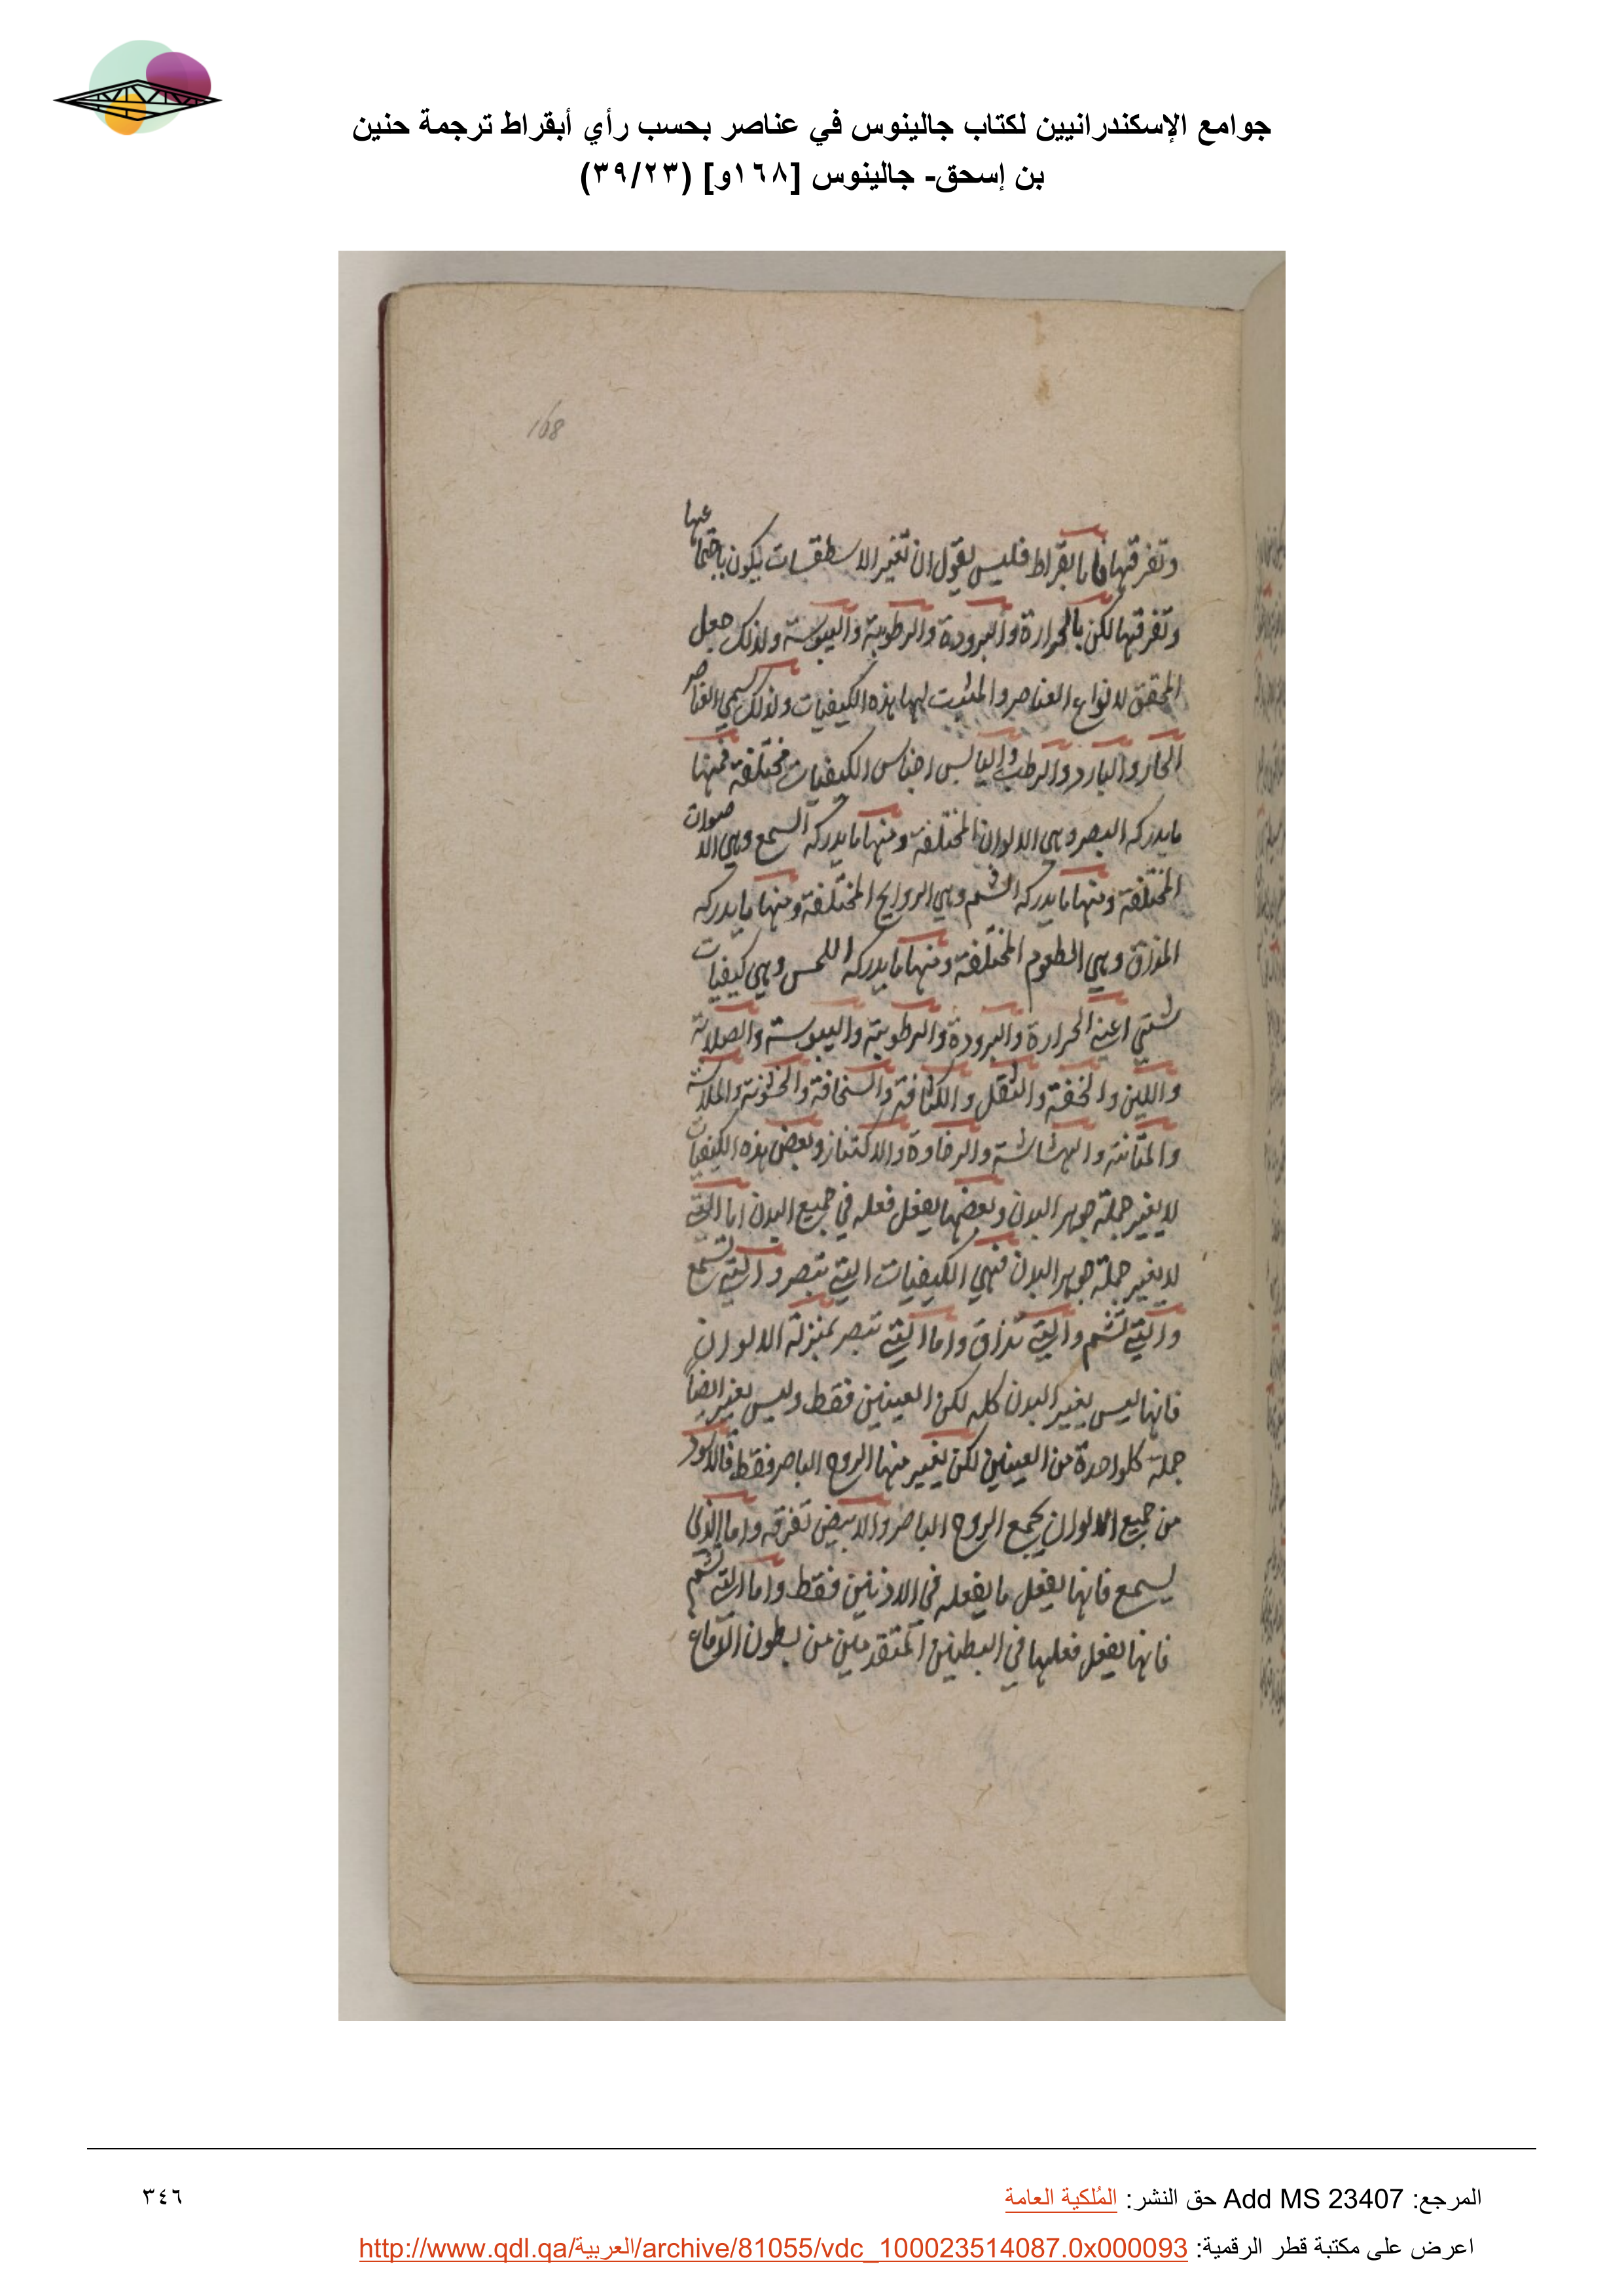 جوامع الإسكندرانيين لكتاب جالينوس في عناصر بحسب رأي أبقراط ترجمة حنين
بن إسحق- جالينوس [١٦٨و] (٣٩/٢٣)
168
وتفرقها فاما بقراط فليس يقول ان تغير الاسطقسات يكون باجتماعها
وتفرقها لكن بالحرارة والبرودة والرطوبة واليبوسة ولذلك جعل
المحقق لانواع العناصر والمثبت لها هذه الكيفيات ولذلك سمى العناصر
الحار والبارد والرطب واليابس اجناس الكيفيات مختلفة فمنها
ما يدركه البصر وهي الالوان المختلفة ومنها ما يدركه السمع وهي الاصوات
المختلفة ومنها ما يدركه الشم وهي الروايح المختلفة ومنها ما يدركه
المذاق وهي الطعوم المختلفة ومنها ما يدركه اللمس وهي كيفيات
شتى اعني الحرارة والبرودة والرطوبة واليبوسة والصلابة
واللين والخفة والثقل والكثافة والسخافة والخشونة والملاسة
والمتانة والهشاشة والرخاوة والاكتناز وبعض هذه الكيفيات
لا يغير جملة جوهر البدن وبعضها يفعل فعله في جميع البدن اما التي
لا يغير جملة جوهر البدن فهي الكيفيات التي تبصر والتي تسمع
والتي تشم والتي تذاق واما التي تبصر بمنزلة الالوان
فانها ليس يغير البدن كله لكن العينين فقط وليس يغير ايضاً
جملة كلواحدة من العينين لكن يغير منها الروح الباصر فقط فالاسود
من جميع الالوان يجمع الروح الباصر والابيض تفرقه واما الذي
يسمع فانها يفعل ما يفعله في الاذنين فقط واما التي تشم
فانها يفعل فعلها في البطنين المتقدمين من بطون الدماغ
المرجع: Add MS 23407 حق النشر: المُلكية العامة
٣٤٦
اعرض على مكتبة قطر الرقمية: http://www.qdl.qa/العربية/archive/81055/vdc_100023514087.0x000093